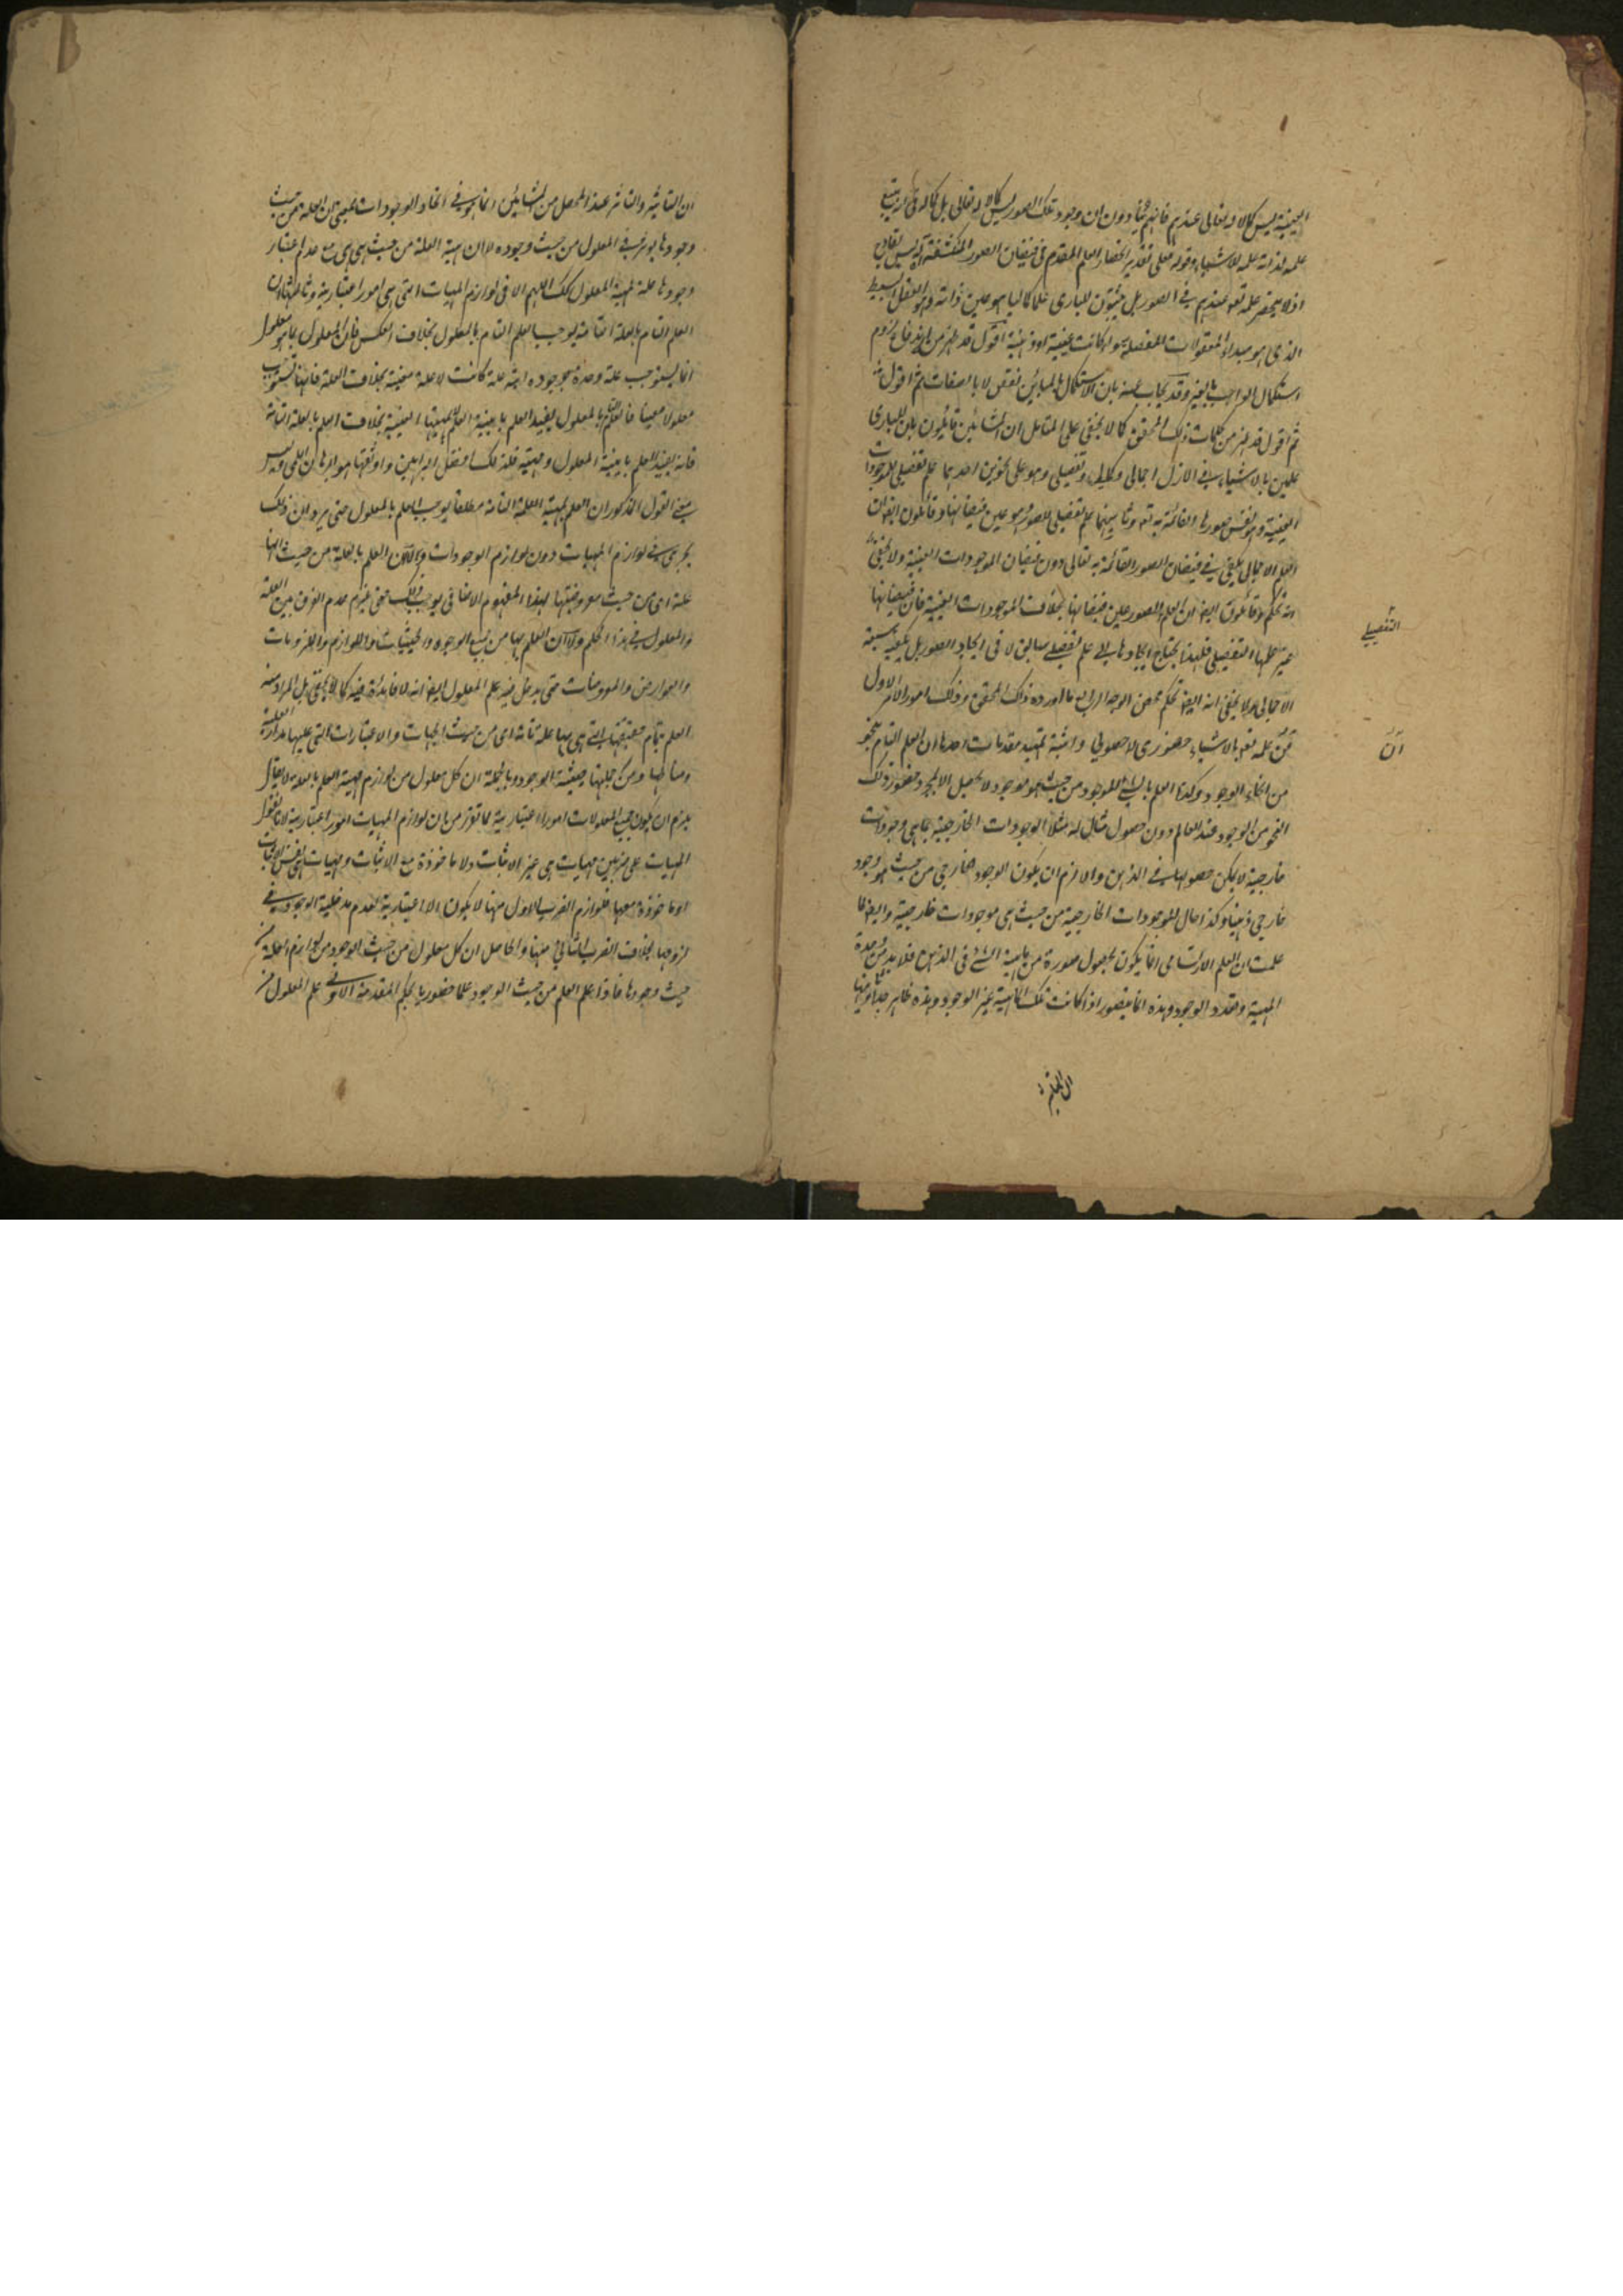 العينية ليس كمالا له تعالى عندهم فانهم يثبتون ان وجود تلك الصور ليس كمالا له تعالى بل كماله في ان يتبع
علمه لذاته علمه للاشياء وقوله على تقدير انحصار العلم المقدم في فيضان الصور المنكشفة
اذ لا ينحصر علمه تعالى عندهم في الصور بل يثبتون للباري علما كماليا هو عين ذاته وهو العقل البسيط
الذي هو مبداء المعقولات المفصلة سواء كانت عينية او ذهنية اقول قد ظهر من لزوم
استكمال الواجب بالغير وقد يجاب عنه بان الاستكمال بالمباين نقص لا بالصفات ثم اقول
ثم اقول قد ظهر من كلمات ذلك المحقق كما لا يخفى على المتامل ان المشائين قائلون بان للباري
علمين بالاشياء في الازل اجمالي وتفصيلي وهو على نحوين احدهما علم تفصيلي للموجودات
العينية وهو نفس صورها القائمة به تعالى وثانيهما علم تفصيلي للصور وهو عين فيضانها وقائلون ايضا بان
العلم الاجمالي يكفي في فيضان الصور القائمة به تعالى دون فيضان الموجودات العينية ولا يخفى
انه تحكم وقائلون ايضا ان العلم بالصور عين فيضانها بخلاف الموجودات العينية فان فيضانها
غير علمها التفصيلي فلهذا يحتاج ايجادها الى علم تفصيلي سابق لا في ايجاد الصور بل يكفيه
الاجمالي ولا يخفى انه ايضا تحكم محض الوجه الرابع ما اورده ذلك المحقق وذلك امور الاول
علمه تعالى بالاشياء حضوري لا حصولي واثبته بتمهيد مقدمات احدها ان العلم التام بنحو
من انحاء الوجود وكذا العلم بالشيء الموجود من حيث هو موجود لا يحصل الا بمجرد حضور ذلك
النحو من الوجود عند العالم دون حصول مثال له مثلا الوجودات الخارجية بما هي وجودات
خارجية لا يمكن حصولها في الذهن والا لزم ان يكون الوجود الخارجي من حيث هو وجود
خارجي ذهنيا وكذا حال الموجودات الخارجية من حيث هي موجودات خارجية وايضا لما
علمت ان العلم الارتسامي انما يكون بحصول صورة من ماهية الشيء في الذهن فلا بد من وحدة
المهية وتعدد الوجود وهذه انما يتصور اذا كانت تلك الماهية غير الوجود وهذه ظاهر جدا وثانيها
التفصيلي
ان
ان التاثير والتاثر عند المحصل من المشائين انما هو في انحاء الوجودات بمعنى ان العلة من حيث
وجودها يوثر في المعلول من حيث وجوده لا ان مهية العلة من حيث هي هي مع عدم اعتبار
وجودها علة لمهية المعلول كك اللهم الا في لوازم المهيات التي هي امور اعتبارية وثالثها ان
العلم التام بالعلة التامة يوجب العلم التام بالمعلول بخلاف العكس فان المعلول بما هو معلول
انما يستوجب علة وحدة بوجوده اية علة كانت لا علة معينة بخلاف العلة فانها تستوجب
معلولا معينا فالعلم بالمعلول يفيد العلم بانية العلة لا بمهيتها المعينة بخلاف العلم بالعلة التامة
فانه يفيد العلم بانية المعلول ومهيته فلذلك افضل البراهين واوثقها هو البرهان اللمي وليس
معنى القول المذكور ان العلم بمهية العلة التامة مطلقا يوجب العلم بالمعلول حتى يرد ان ذلك
يجري في لوازم المهيات دون لوازم الوجودات ولا ان العلم بالعلة من حيث انها
علة اي من حيث معروضيتها لهذا المفهوم الاضافي يوجب ذلك حتى يلزم عدم الفرق بين العلة
والمعلول في هذا الحكم ولا ان العلم بها من جميع الوجوه والحيثيات واللوازم والملزومات
والعوارض والمعروضات حتى يدخل فيه علم المعلول ايضا انه لا فائدة فيه كما لا يخفى بل المراد منه
العلم بتمام حقيقتها التي هي بها علة تامة اي من حيث الجهات والاعتبارات التي عليها مدار العلية
ومناطها ومن جملتها حيثية الوجود وبالجملة ان كل معلول من لوازم مهية العلم بالعلة لا يقال
يلزم ان يكون جميع المعلولات امورا اعتبارية لما تقرر من ان لوازم المهيات امور اعتبارية لانا نقول
المهيات على ضربين مهيات هي غير الاثبات ولا ماخوذة مع الاثبات ومهيات هي نفس الاثبات
او ماخوذة معها فلوازم الضرب الاول منها لا يكون الا اعتبارية لعدم مدخلية الوجود في
لزومها بخلاف الضرب الثاني منها والحاصل ان كل معلول من حيث الوجود من لوازم العلة من
حيث وجودها فاذا علم العلم من حيث الوجود علما حضوريا بحكم المقدمة الاولى علم المعلول من